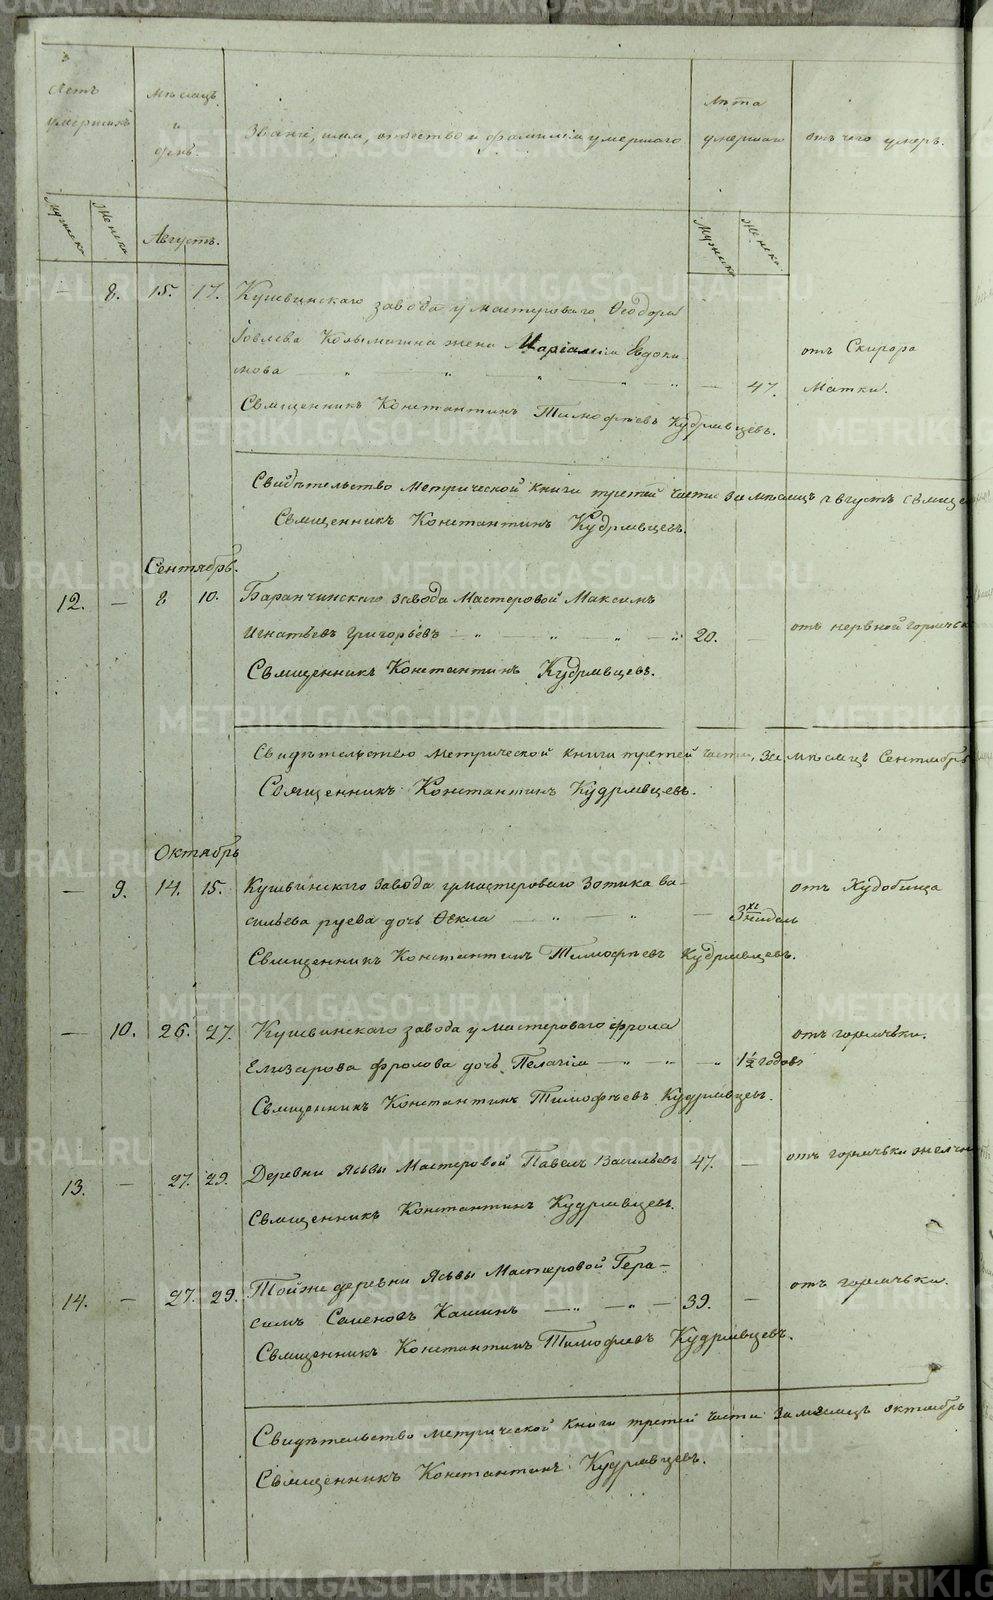 Счетъ умершихъ
Мѣсяцъ и день.
Званіе, имя, отчество и фамилія умершаго
Лѣта умершаго
отъ чего умеръ.
Мужска
Женска
Августъ.
Мужска
Женска
— 8. 15. 17. Кушвинскаго завода у мастероваго Ѳеодора
Іовлева Колымагина жена Маріамія Евдоки
мова — 47. отъ Скирора Матки.
Священникъ Константинъ Тимофѣевъ Кудрявцевъ.
Свидѣтельство Метрической Книги третей части за мѣсяцъ Августъ
Священникъ Константинъ Кудрявцевъ.
Сентябрь.
12. — 8 10. Баранчинскаго завода Мастеровой Максимъ
Игнатьевъ Григорьевъ 20. — отъ нервной горячьк
Священникъ Константинъ Кудрявцевъ.
Свидѣтельство Метрической Книги третей части, за мѣсяцъ Сентябрь
Священникъ Константинъ Кудрявцевъ.
Октябрь
— 9. 14. 15. Кушвинскаго завода у мастероваго Зотика ва-
сильева руева дочь Ѳекла — 3хъ недель отъ Худобища
Священникъ Константинъ Тимофѣевъ Кудрявцевъ.
— 10. 26. 27. Кушвинскаго завода у мастероваго фрола
Елизарова фролова дочь Пелагія 1½ годовъ отъ горячьки.
Священникъ Константинъ Тимофѣевъ Кудрявцевъ.
13. — 27. 29. Деревни Ясьвы Мастеровой Павелъ Васильевъ 47. — отъ горячьки желчн
Священникъ Константинъ Кудрявцевъ.
14. — 27. 29. Тойже деревни Ясьвы Мастеровой Гера-
симъ Семеновъ Кашинъ 39. — отъ горячьки.
Священникъ Константинъ Тимофеевъ Кудрявцевъ.
Свидѣтельство Метрической Книги третей части за мѣсяцъ октябрь
Священникъ Константинъ Кудрявцевъ.
METRIKI.GASO-URAL.RU